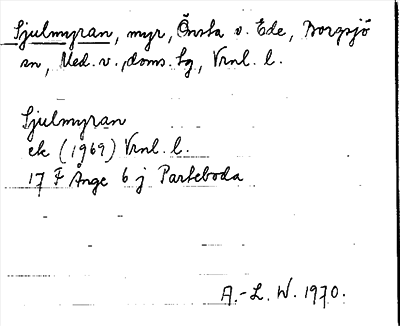 Sjulmyran, myr, Önsta o. Ede, Borgsjö
sn, Med. v. doms. tg, Vrnl. l.
Sjulmyran
ek (1969) Vrnl. l.
17 F Ånge 6 j Parteboda
A.-L. W. 1970.